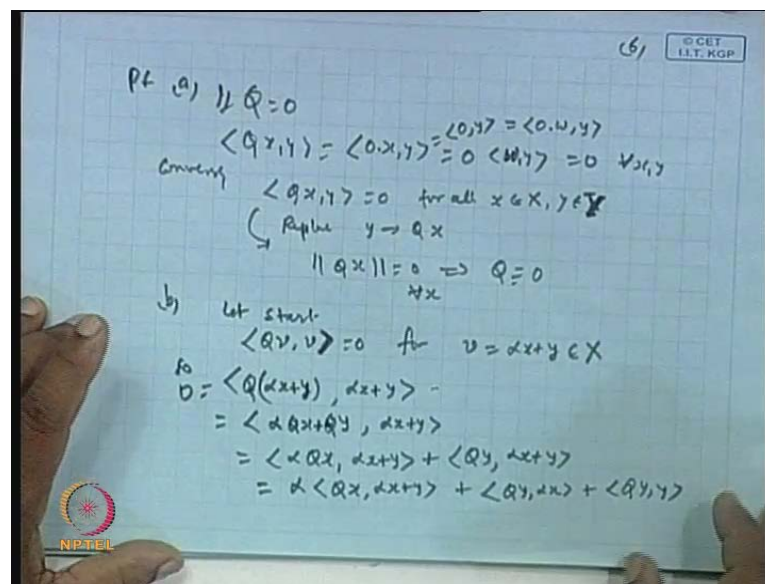 (5)
© CET
I.I.T. KGP
Pf (a) If Q = 0
⟨Qx, y⟩ = ⟨0.x, y⟩ = ⟨0, y⟩ = ⟨0.w, y⟩
= 0 ⟨w, y⟩ = 0 ∀ x, y
Conversely
⟨Qx, y⟩ = 0 for all x ∈ X, y ∈ Y
Replace y → Qx
||Qx|| = 0 ⇒ Q = 0
∀x
b) Let start
⟨Qv, v⟩ = 0 for v = αx+y ∈ X
So
0 = ⟨Q(αx+y), αx+y⟩
= ⟨αQx+Qy, αx+y⟩
= ⟨αQx, αx+y⟩ + ⟨Qy, αx+y⟩
= α⟨Qx, αx+y⟩ + ⟨Qy, αx⟩ + ⟨Qy, y⟩
NPTEL